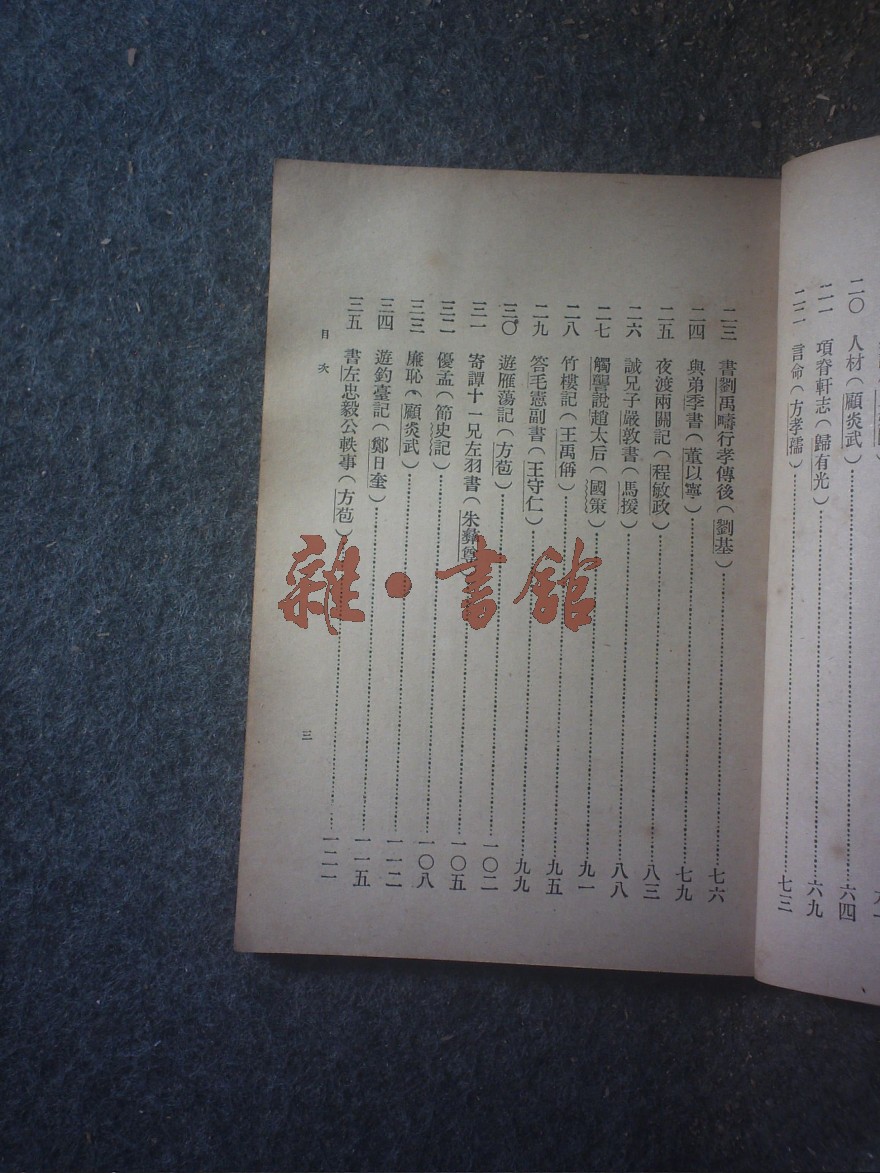 二〇 人材(顧炎武)……六四
二一 項脊軒志(歸有光)……六九
二二 言命(方孝孺)……七三
二三 書劉禹疇行孝傳後(劉基)……七六
二四 與弟季書(董以寧)……七九
二五 夜渡兩關記(程敏政)……八三
二六 誡兄子嚴敦書(馬援)……八八
二七 觸讋說趙太后(國策)……九一
二八 竹樓記(王禹偁)……九五
二九 答毛憲副書(王守仁)……九九
三〇 遊雁蕩記(方苞)……一〇二
三一 寄譚十一兄左羽書(朱彝尊……一〇五
三二 優孟(節史記)……一〇八
三三 廉恥(顧炎武)……一一二
三四 遊釣臺記(鄭日奎)……一一五
三五 書左忠毅公軼事(方苞)……一二一
目次
三
雜·書館